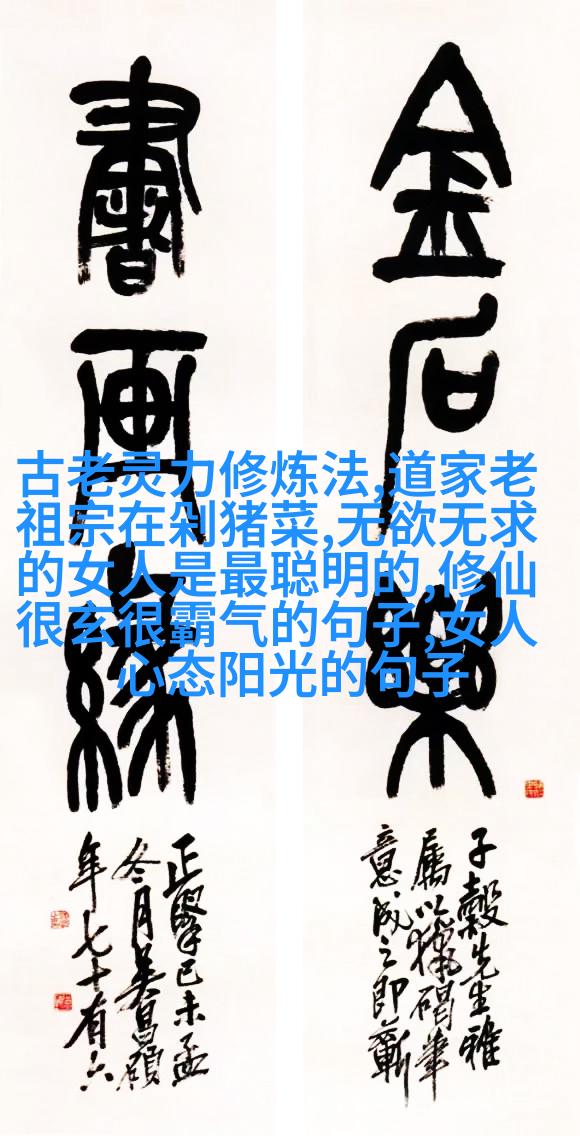 金石樂
子穀先生雅
屬以獵碣筆
意成之即蘄
書画緣
正 己未孟
冬月吴昌碩
年七十有六
古老灵力修炼法,道家老
祖宗在剁猪菜,无欲无求
的女人是最聪明的,修仙
很玄很霸气的句子,女人
心态阳光的句子